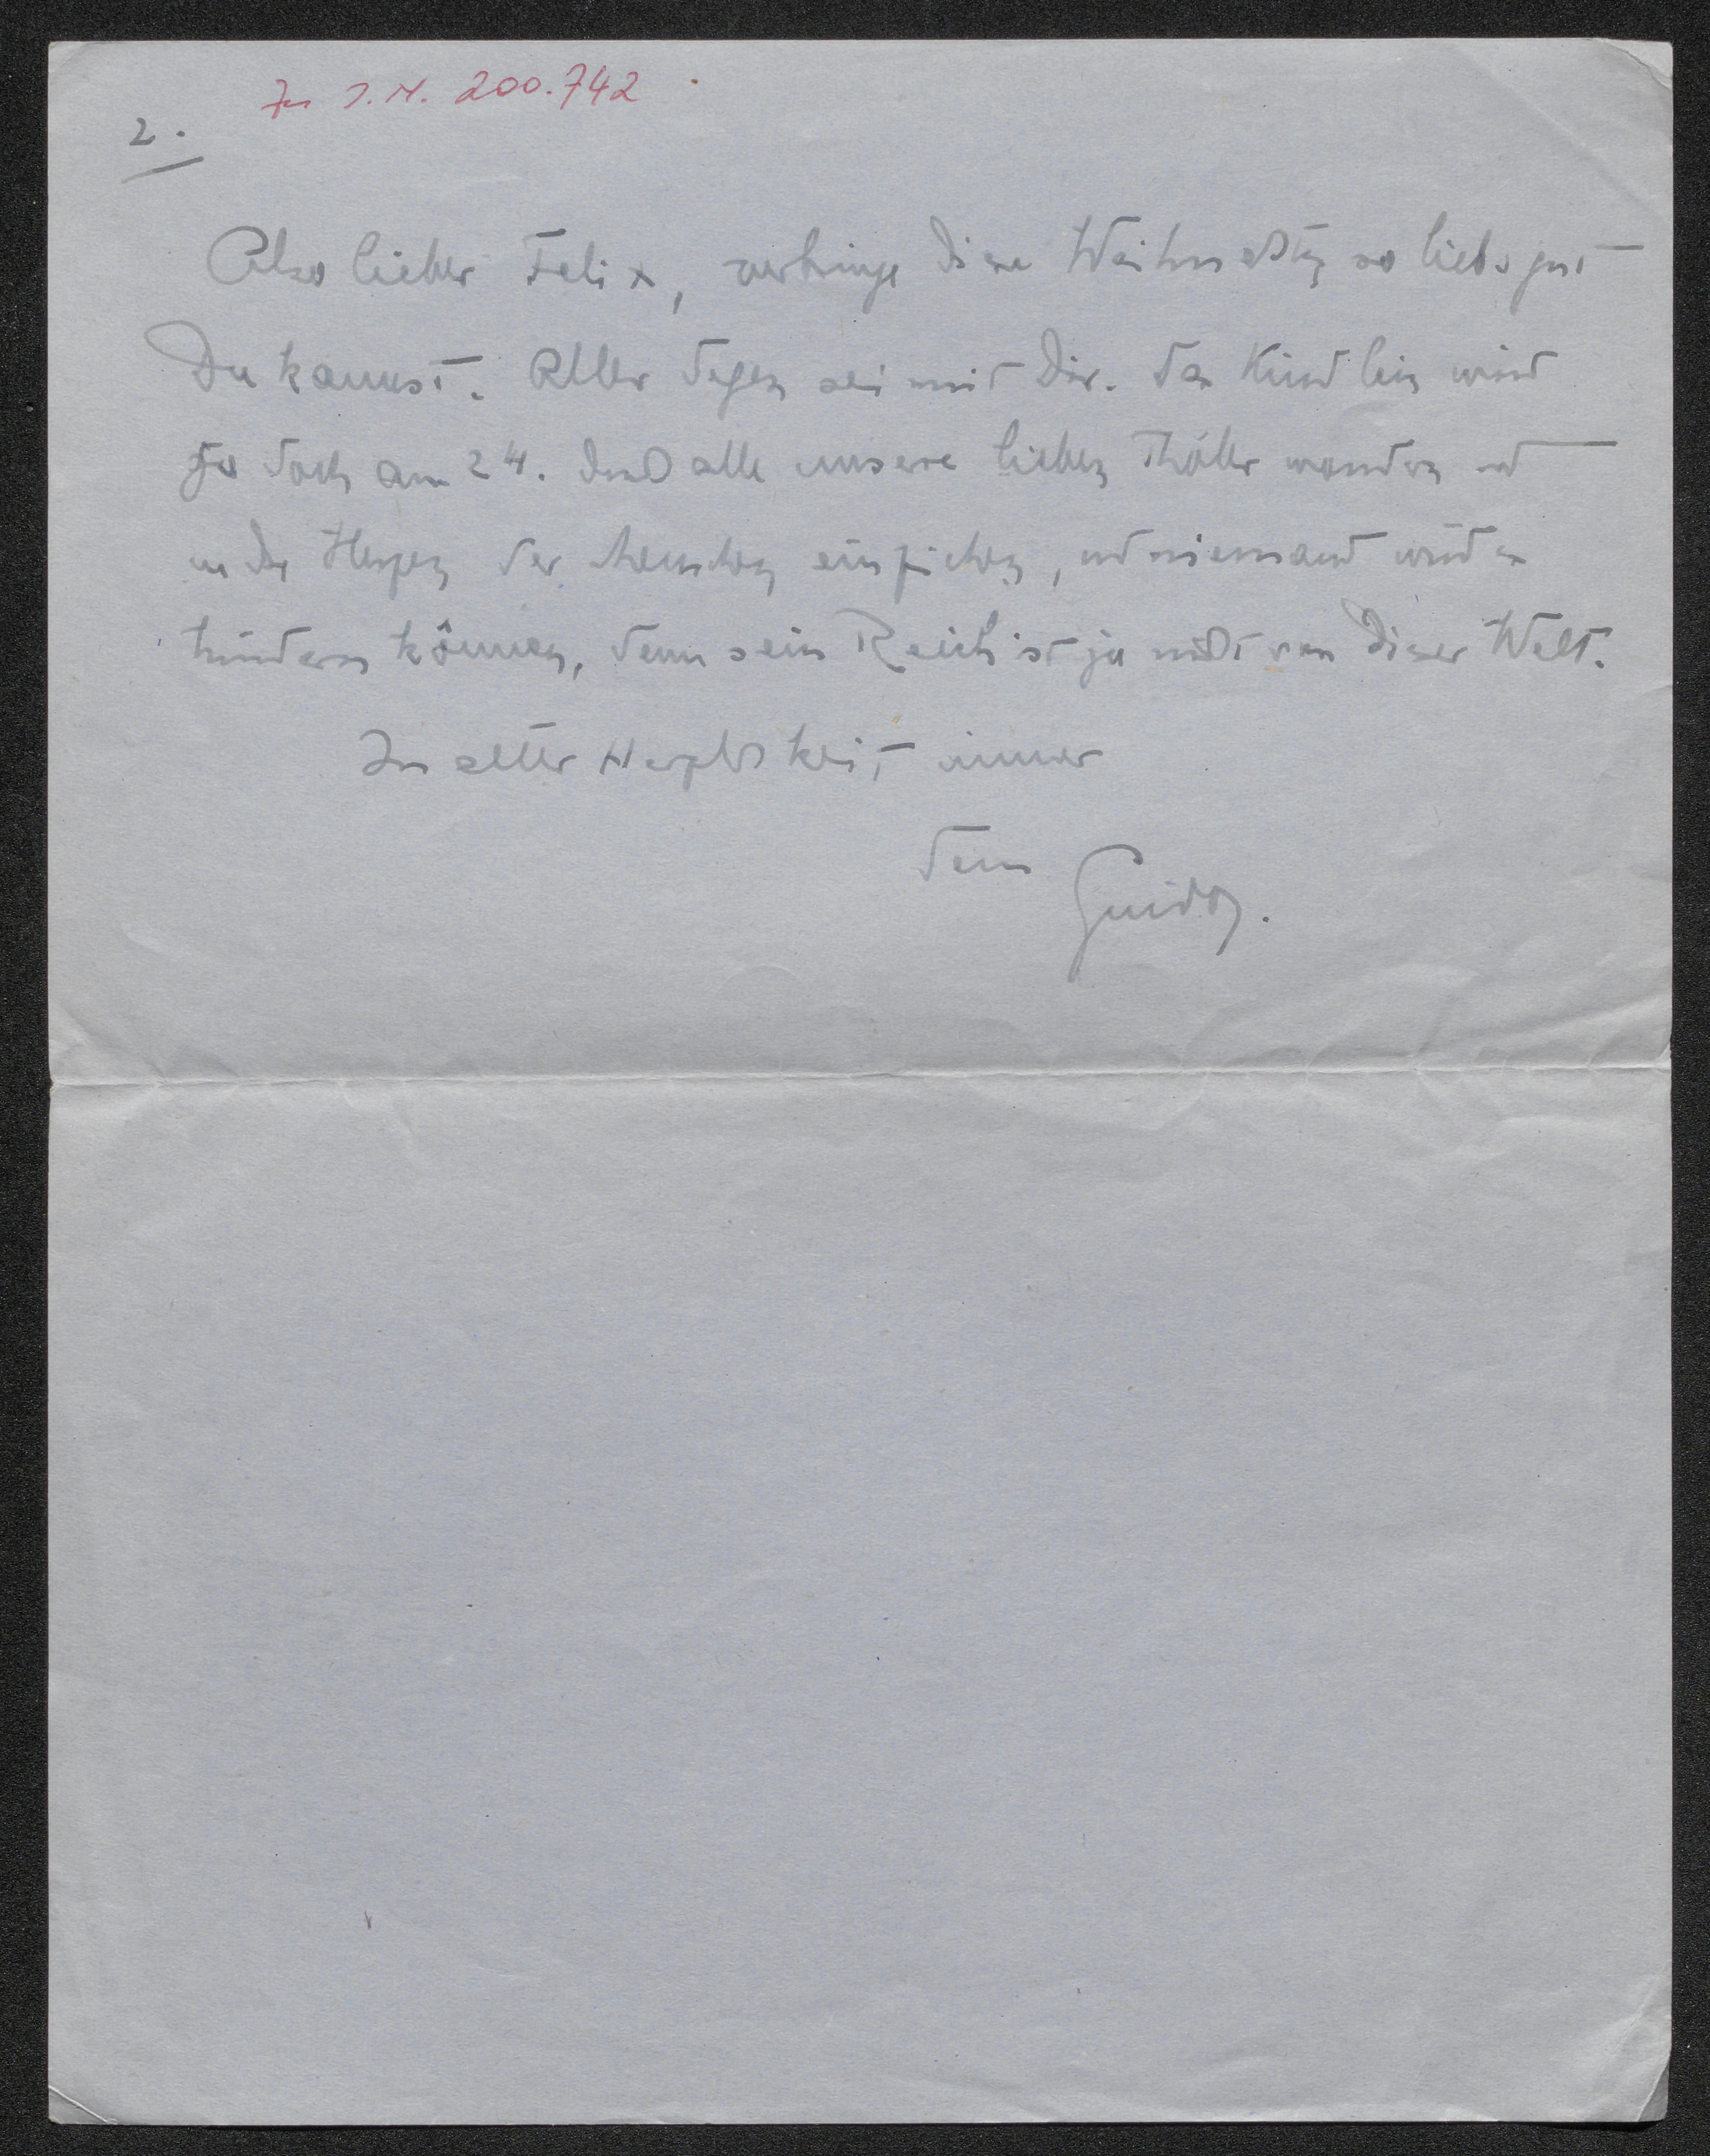 Zu I.N. 200.742
2.
Also lieber Felix, verbringe diese Weihnachten so lieb u gut
Du kannst. Aller Segen sei mit Dir. Das Kindlein wird
ja doch am 24. durch alle unsere lieben Thäler wandern und
in die Herzen der Menschen einziehen, und niemand wird es
hindern können, denn sein Reich ist ja nicht von dieser Welt.
In aller Herzlichkeit immer
Dein
Guido.